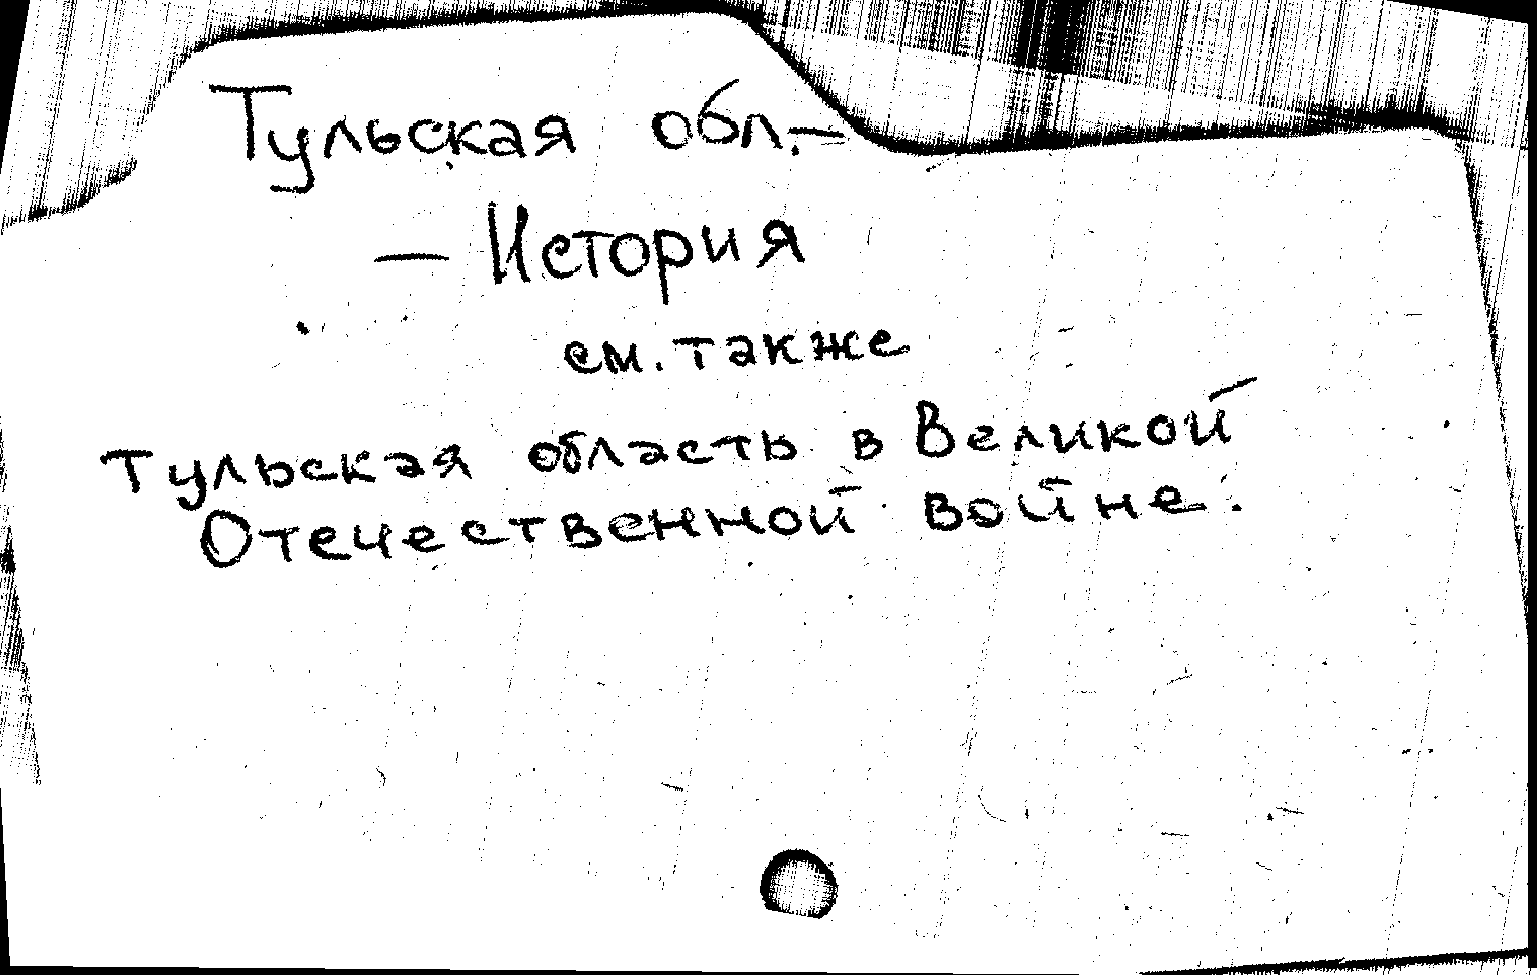 Тульская обл.—
— История
см. также
Тульская область в Великой
Отечественной войне.